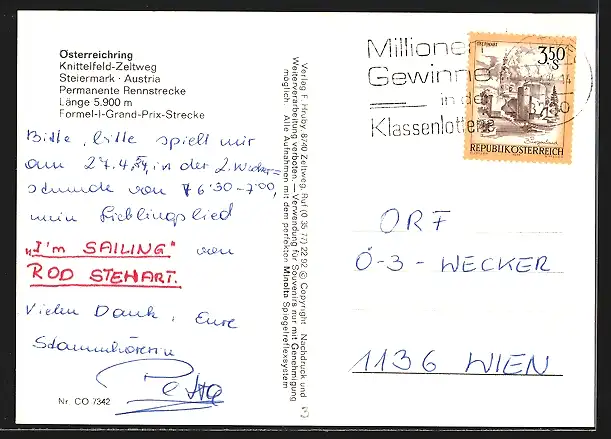 Österreichring
Knittelfeld-Zeltweg
Steiermark · Austria
Permanente Rennstrecke
Länge 5.900 m
Formel-I-Grand-Prix-Strecke
Bitte, bitte spielt mir
am 27.4. in der 2. Wecker-
stunde von 6:30-7:00,
mein Lieblingslied
„I'm SAILING" von
ROD STEWART.
Vielen Dank, Eure
Stammhörerin
Petra
Nr. CO 7342
Verlag F. Hruby, 8740 Zeltweg, Ruf (0 35 77) 22 92 © Copyright Nachdruck und
Weiterverarbeitung verboten. — Verwendung für Souvenirs nur mit Genehmigung
möglich. Alle Aufnahmen mit dem perfekten Minolta Spiegelreflexsystem
3
Millionen
Gewinne
in der
Klassenlotterie
3.50
S
REPUBLIK ÖSTERREICH
ORF
Ö-3-WECKER
1136 WIEN